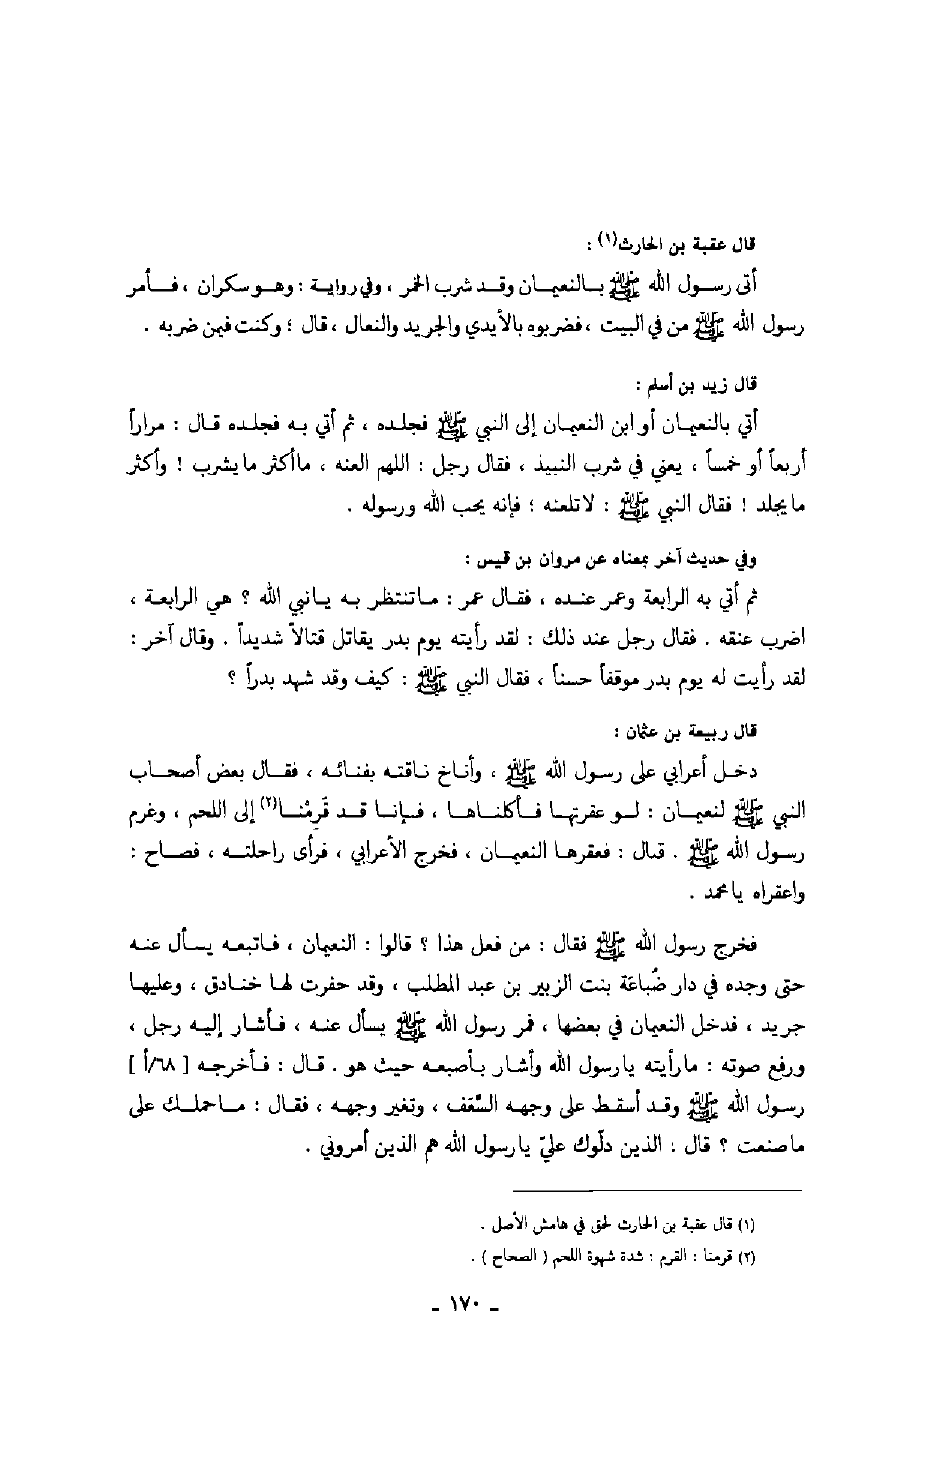 قال عقبة بن الحارث(١) :
أتى رسول الله ﷺ بالنعيمان وقد شرب الخمر ، وفي رواية : وهو سكران ، فأمر
رسول الله ﷺ من في البيت ، فضربوه بالأيدي والجريد والنعال ، قال ؛ وكنت فيمن ضربه .
قال زيد بن أسلم :
أتي بالنعيمان أو ابن النعيمان إلى النبي ﷺ فجلده ، ثم أتي به فجلده قال : مراراً
أربعاً أو خمساً ، يعني في شرب النبيذ ، فقال رجل : اللهم العنه ، ما أكثر ما يشرب ! وأكثر
ما يجلد ! فقال النبي ﷺ : لا تلعنه ؛ فإنه يحب الله ورسوله .
وفي حديث آخر بمعناه عن مروان بن قيس :
ثم أتي به الرابعة وعمر عنده ، فقال عمر : ما تنتظر به يا نبي الله ؟ هي الرابعة ،
اضرب عنقه . فقال رجل عند ذلك : لقد رأيته يوم بدر يقاتل قتالاً شديداً . وقال آخر :
لقد رأيت له يوم بدر موقفاً حسناً ، فقال النبي ﷺ : كيف وقد شهد بدراً ؟
قال ربيعة بن عثمان :
دخل أعرابي على رسول الله ﷺ ، وأناخ ناقته بفنائه ، فقال بعض أصحاب
النبي ﷺ لنعيمان : لو عقرتها فأكلناها ، فإنا قد قَرِمْنا(٢) إلى اللحم ، وغرم
رسول الله ﷺ . قال : فعقرها النعيمان ، فخرج الأعرابي ، فرأى راحلته ، فصاح :
واعقراه يا محمد .
فخرج رسول الله ﷺ فقال : من فعل هذا ؟ قالوا : النعيمان ، فاتبعه يسأل عنه
حتى وجده في دار ضُباعَة بنت الزبير بن عبد المطلب ، وقد حفرت لها خنادق ، وعليها
جريد ، فدخل النعيمان في بعضها ، فمر رسول الله ﷺ يسأل عنه ، فأشار إليه رجل ،
ورفع صوته : ما رأيته يا رسول الله وأشار بأصبعه حيث هو . قال : فأخرجه [ ٦٨/أ ]
رسول الله ﷺ وقد أسقط على وجهه السَّعَف ، وتغير وجهه ، فقال : ما حملك على
ما صنعت ؟ قال : الذين دلّوك عليّ يا رسول الله هم الذين أمروني .
(١) قال عقبة بن الحارث لحق في هامش الأصل .
(٢) قرمنا : القرم : شدة شهوة اللحم ( الصحاح ) .
- ١٧٠ -